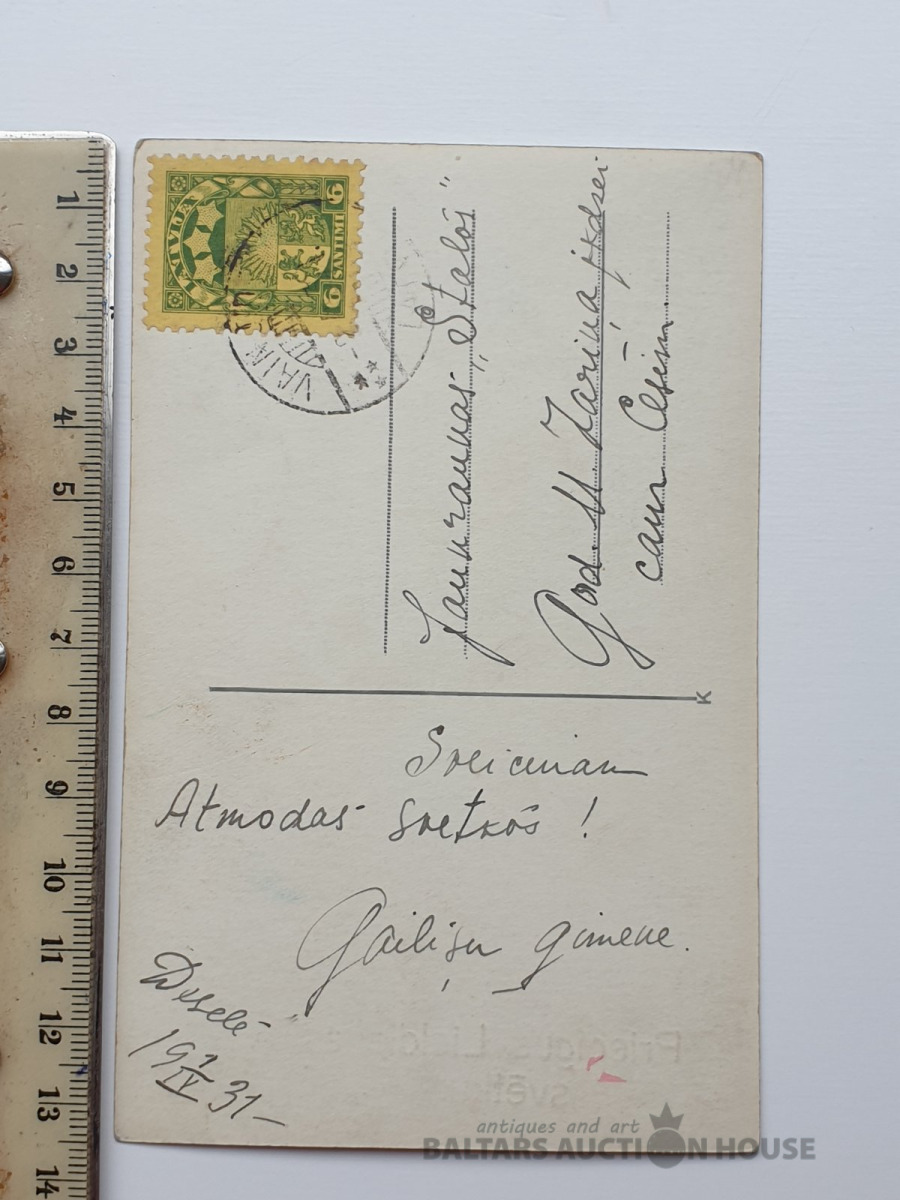 LATVIJA
6 SANTIMI 6
Jaunraunas „Stalos"
God. M. Zariņa jkdzei
caur Cēsīm
Sveicinam
Atmodas svetkos!
Gailišu gimene.
19 1/IV 31
K
Priecigus
svēt
antiques and art
BALTARS AUCTION HOUSE
1
2
3
4
5
6
7
8
9
10
11
12
13
14